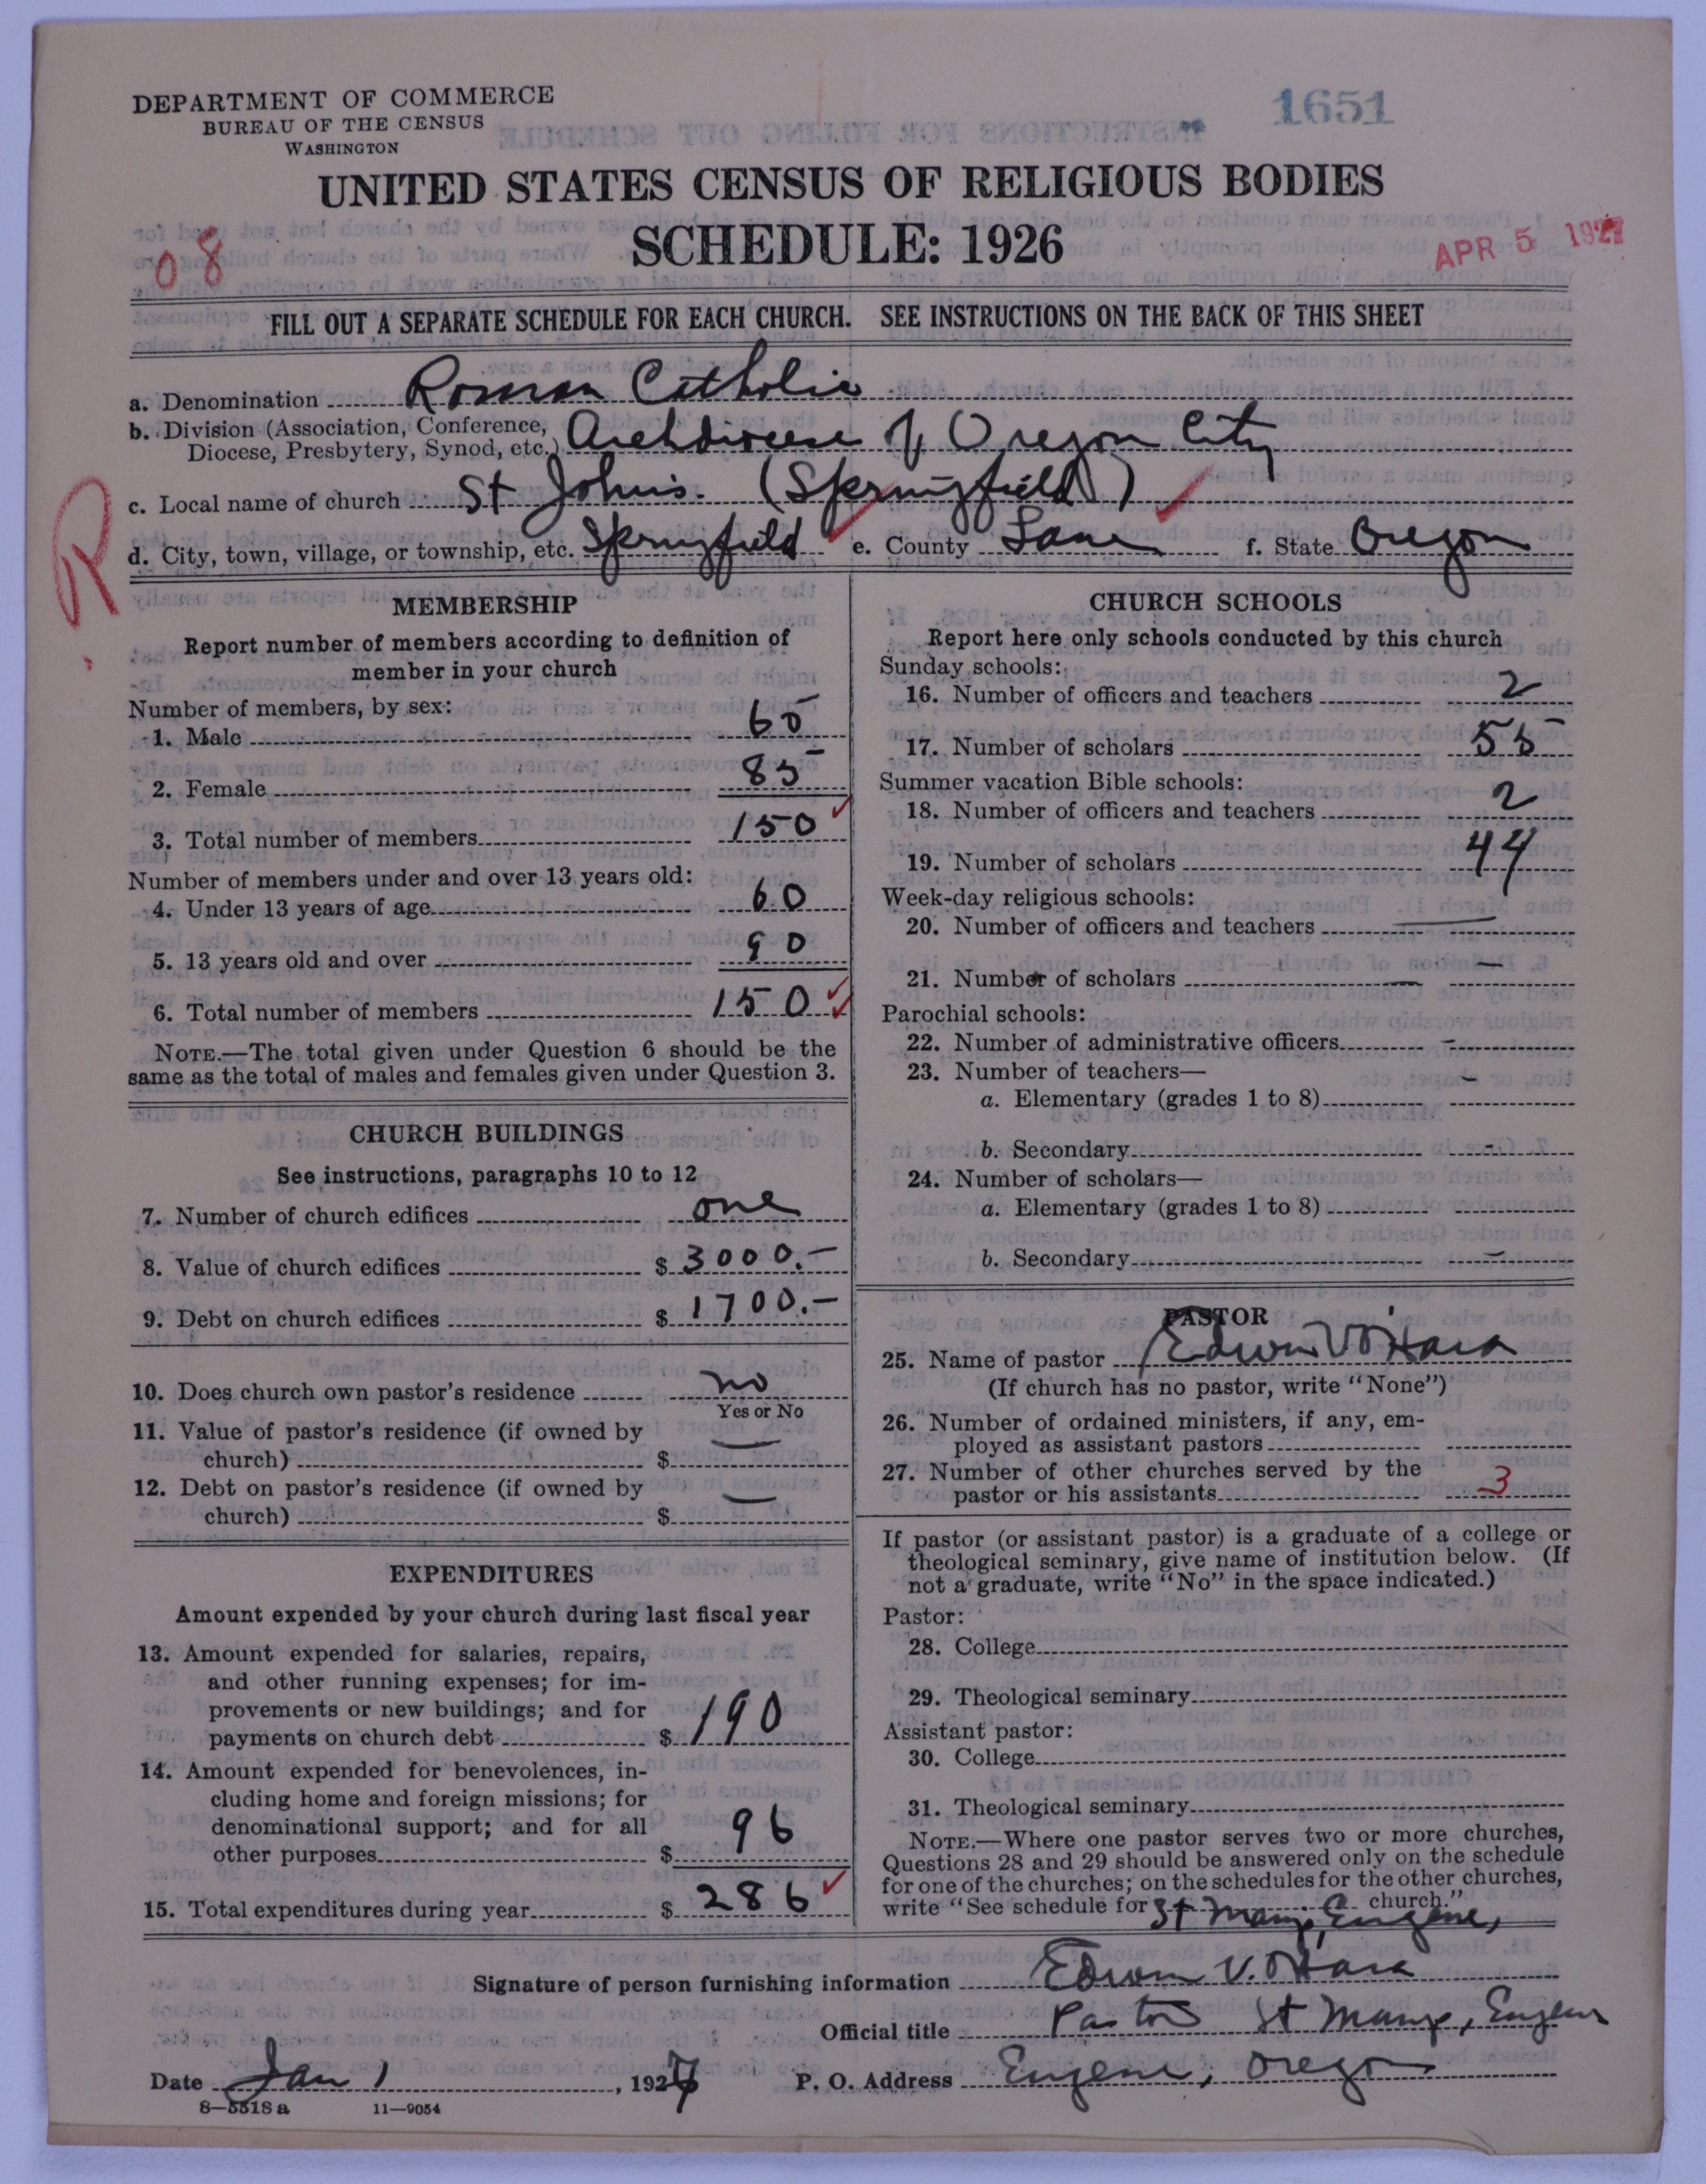 DEPARTMENT OF COMMERCE
BUREAU OF THE CENSUS
WASHINGTON
1651
UNITED STATES CENSUS OF RELIGIOUS BODIES
SCHEDULE: 1926
08
APR 5 1927
FILL OUT A SEPARATE SCHEDULE FOR EACH CHURCH. SEE INSTRUCTIONS ON THE BACK OF THIS SHEET
a. Denomination Roman Catholic
b. Division (Association, Conference, Diocese, Presbytery, Synod, etc.) Archdiocese of Oregon City
c. Local name of church St Johns. (Springfield)
R
d. City, town, village, or township, etc. Springfield e. County Lane f. State Oregon
MEMBERSHIP
Report number of members according to definition of
member in your church
Number of members, by sex:
1. Male 65
2. Female 85
3. Total number of members 150
Number of members under and over 13 years old:
4. Under 13 years of age 60
5. 13 years old and over 90
6. Total number of members 150
NOTE.—The total given under Question 6 should be the
same as the total of males and females given under Question 3.
CHURCH BUILDINGS
See instructions, paragraphs 10 to 12
7. Number of church edifices one
8. Value of church edifices $ 3000.—
9. Debt on church edifices $ 1700.—
10. Does church own pastor's residence no
Yes or No
11. Value of pastor's residence (if owned by
church) $ —
12. Debt on pastor's residence (if owned by
church) $ —
EXPENDITURES
Amount expended by your church during last fiscal year
13. Amount expended for salaries, repairs,
and other running expenses; for im-
provements or new buildings; and for
payments on church debt $ 190
14. Amount expended for benevolences, in-
cluding home and foreign missions; for
denominational support; and for all
other purposes $ 96
15. Total expenditures during year $ 286
CHURCH SCHOOLS
Report here only schools conducted by this church
Sunday schools:
16. Number of officers and teachers 2
17. Number of scholars 55
Summer vacation Bible schools:
18. Number of officers and teachers 2
19. Number of scholars 44
Week-day religious schools:
20. Number of officers and teachers —
21. Number of scholars —
Parochial schools:
22. Number of administrative officers -
23. Number of teachers— -
a. Elementary (grades 1 to 8)
b. Secondary -
24. Number of scholars—
a. Elementary (grades 1 to 8)
b. Secondary -
PASTOR
25. Name of pastor Edwin V O'Hara
(If church has no pastor, write "None")
26. Number of ordained ministers, if any, em-
ployed as assistant pastors
27. Number of other churches served by the
pastor or his assistants 3
If pastor (or assistant pastor) is a graduate of a college or
theological seminary, give name of institution below. (If
not a graduate, write "No" in the space indicated.)
Pastor:
28. College
29. Theological seminary
Assistant pastor:
30. College
31. Theological seminary
NOTE.—Where one pastor serves two or more churches,
Questions 28 and 29 should be answered only on the schedule
for one of the churches; on the schedules for the other churches,
write "See schedule for St Marys, Eugene, church."
Signature of person furnishing information Edwin V. O'Hara
Official title Pastor St Marys, Eugene
Date Jan 1, 1927 P. O. Address Eugene, Oregon
8—5518a 11—9054